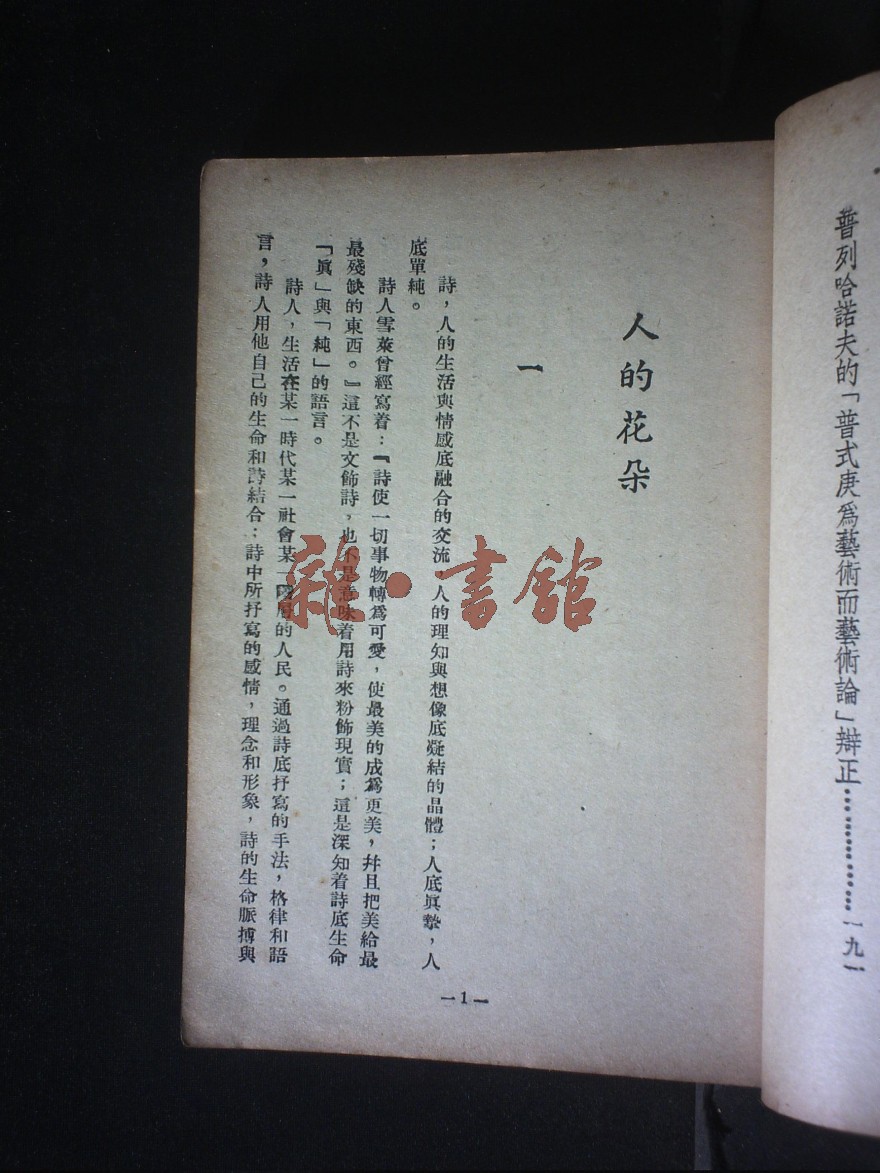 普列哈諾夫的「普式庚爲藝術而藝術論」辯正……………一九一
人的花朵
一
詩，人的生活與情感底融合的交流，人的理知與想像底凝結的晶體；人底眞摯，人
底單純。
詩人雪萊曾經寫着：『詩使一切事物轉爲可愛，使最美的成爲更美，幷且把美給最
最殘缺的東西。』這不是文飾詩，也不是意味着用詩來粉飾現實；這是深知着詩底生命
「眞」與「純」的語言。
詩人，生活在某一時代某一社會某一階層的人民。通過詩底抒寫的手法，格律和語
言，詩人用他自己的生命和詩結合；詩中所抒寫的感情，理念和形象，詩的生命脈搏與
—1—
雜·書館